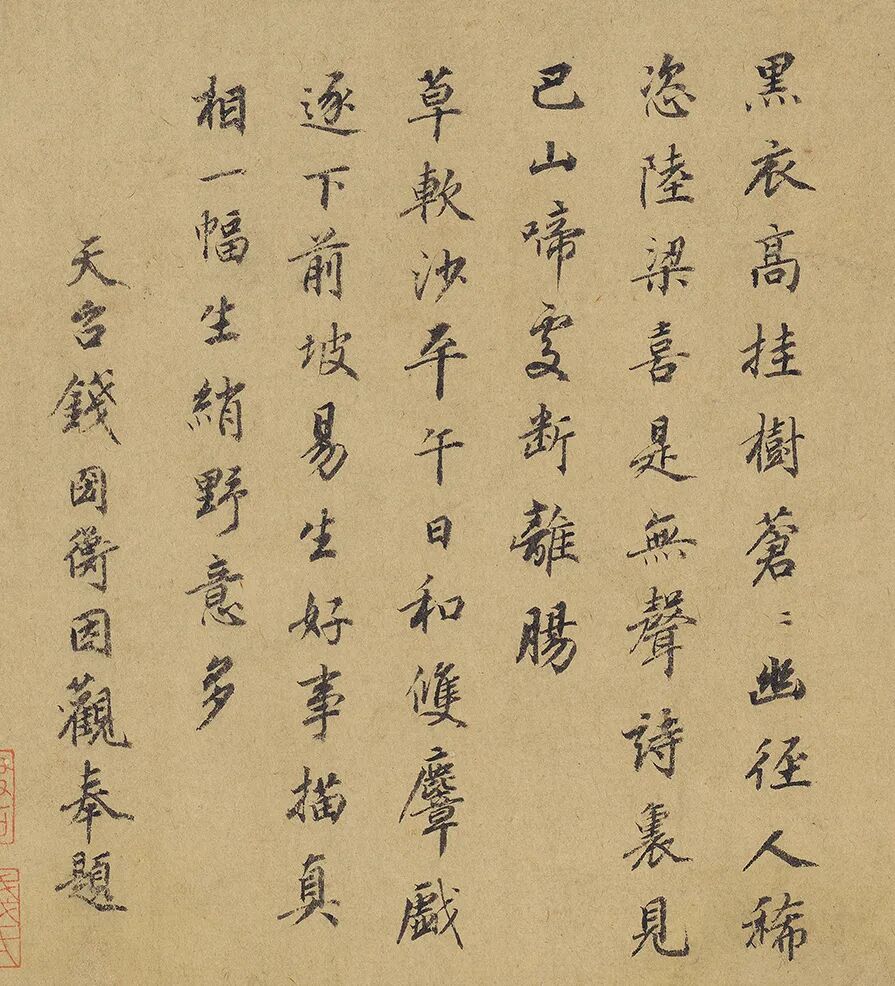 黒衣高挂樹蒼〻幽徑人稀
恣陸梁喜是無聲詩裏見
巴山啼處断離腸
草軟沙平午日和雙麞戲
逐下前坡易生好事描真
相一幅生綃野意多
天台錢因衡因觀奉題